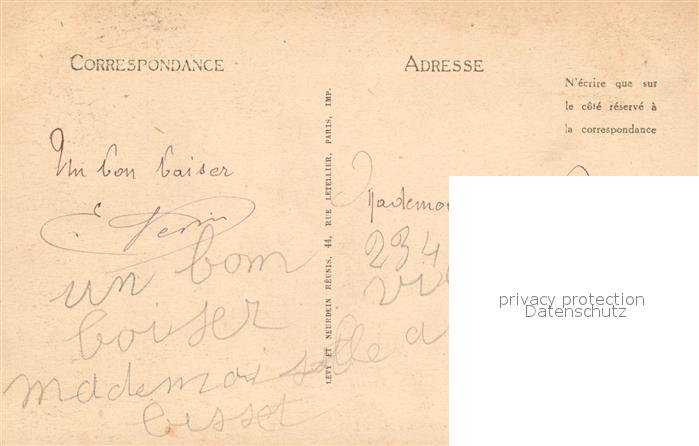 CORRESPONDANCE
ADRESSE
N'écrire que sur
le côté réservé à
la correspondance
LEVY ET NEURDEIN RÉUNIS, 44, RUE LETELLIER, PARIS, IMP.
Un bon baiser
Mademoi
234
un bom
boiser
mademoiselle a
privacy protection
Datenschutz